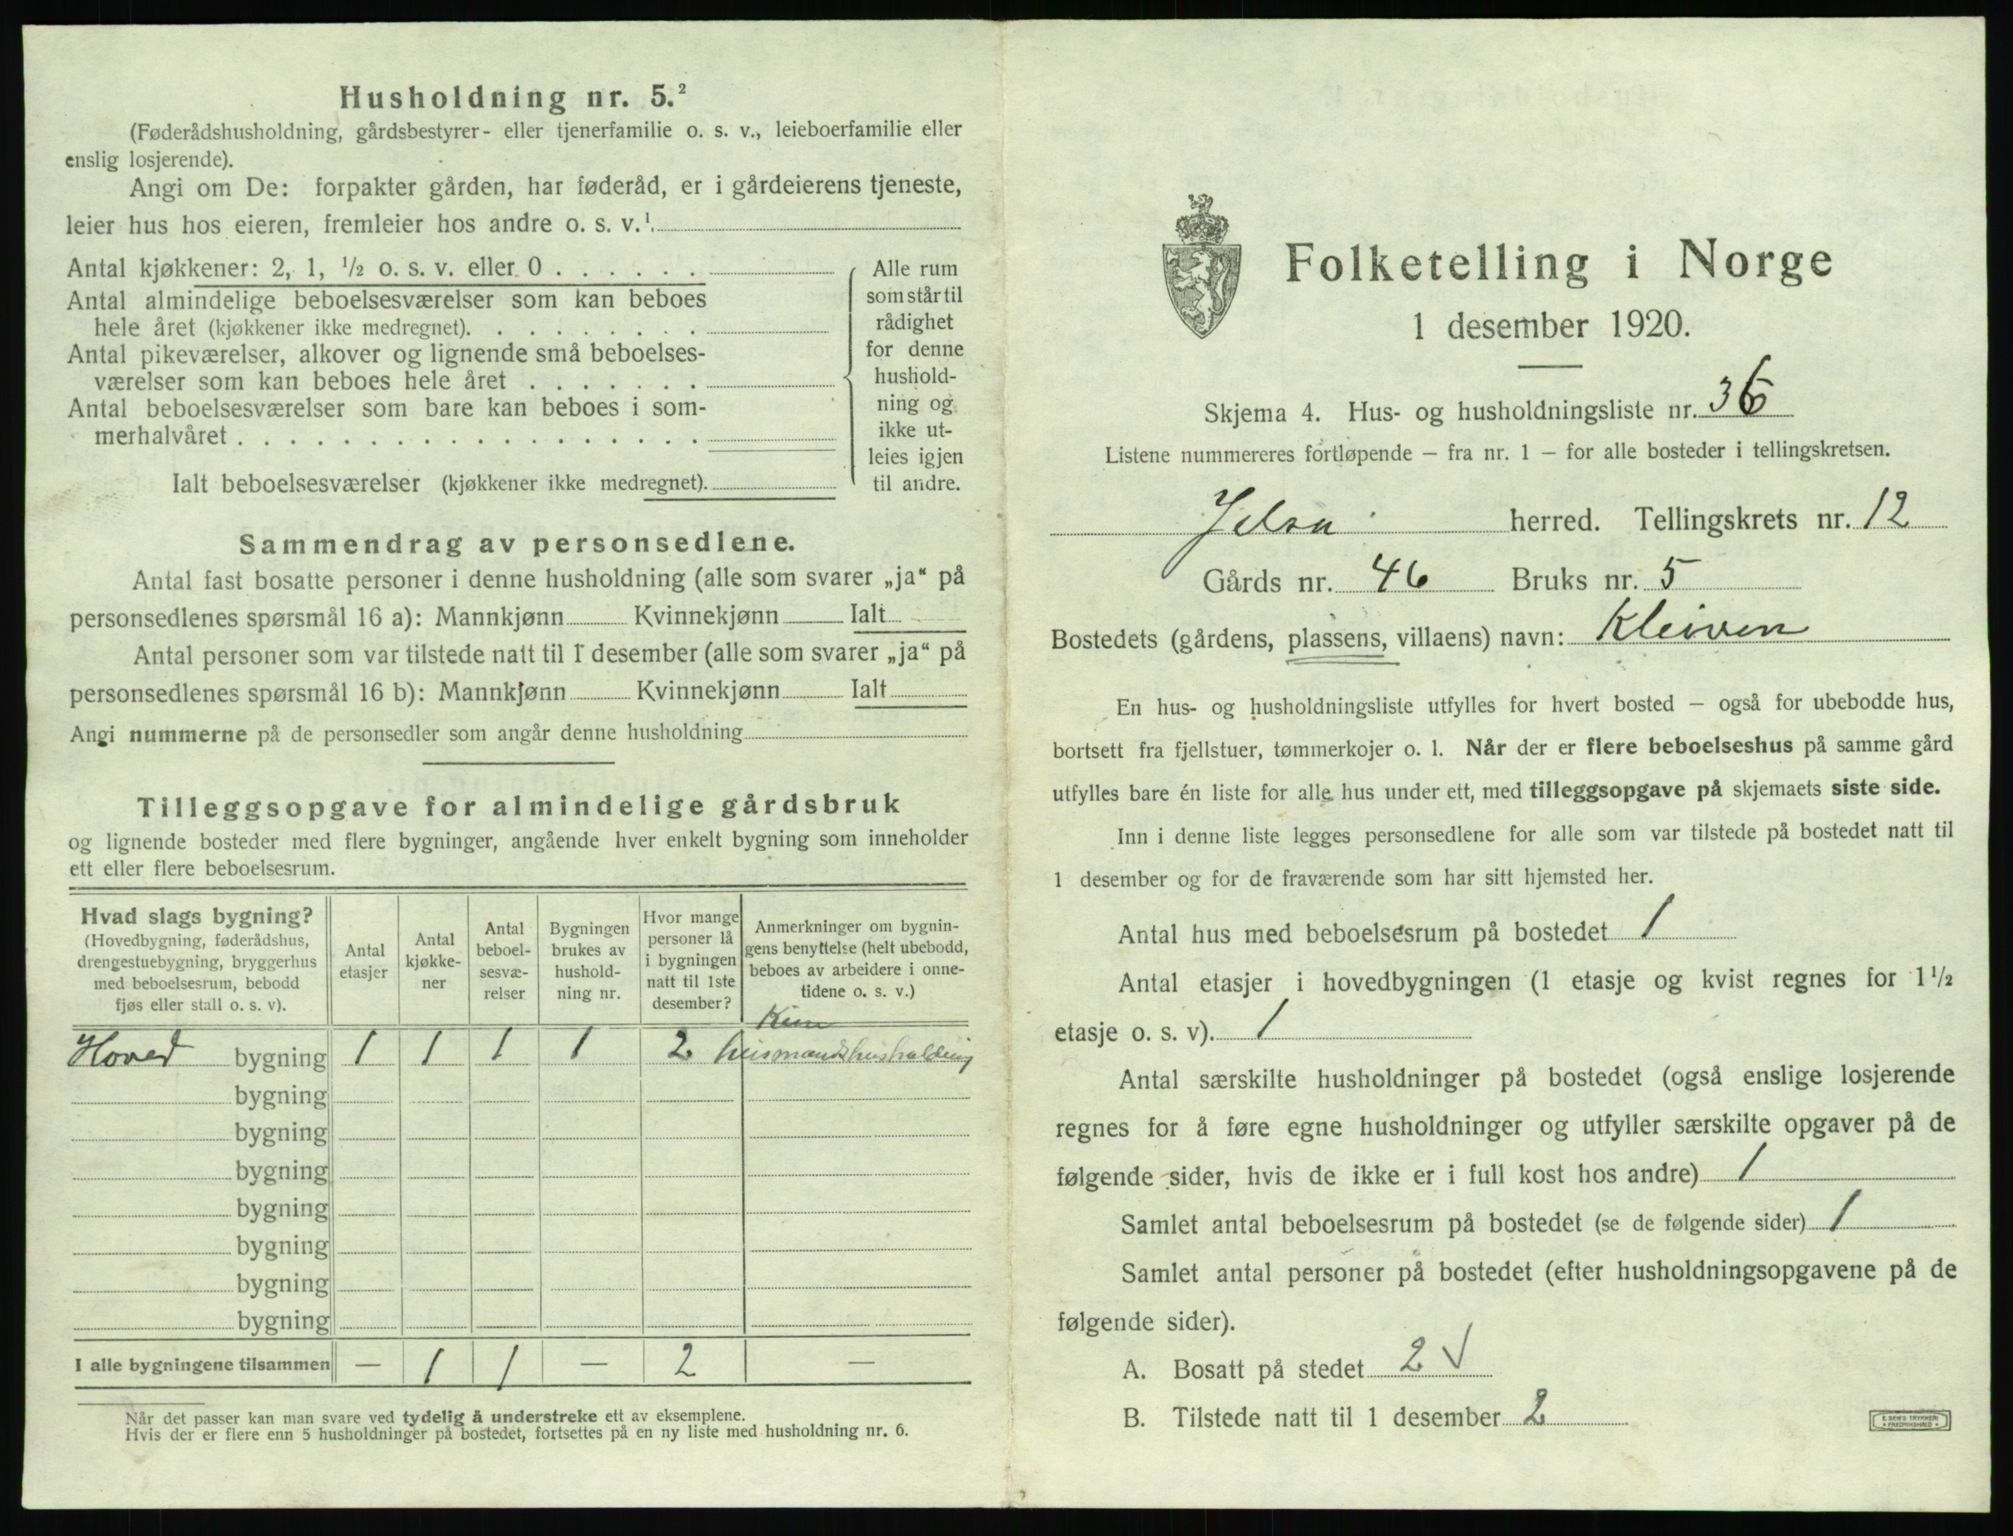 Husholdning nr. 5.²
(Føderådshusholdning, gårdsbestyrer- eller tjenerfamilie o. s. v., leieboerfamilie eller
enslig losjerende).
Angi om De: forpakter gården, har føderåd, er i gårdeierens tjeneste,
leier hus hos eieren, fremleier hos andre o. s. v.¹.
Antal kjøkkener: 2, 1, ½ o. s. v. eller 0 . . . . . .
Antal almindelige beboelsesværelser som kan beboes
hele året (kjøkkener ikke medregnet). . . . . . . . . .
Antal pikeværelser, alkover og lignende små beboelses-
værelser som kan beboes hele året . . . . . . .
Antal beboelsesværelser som bare kan beboes i som-
merhalvåret . . . . . . . . . . . . . . . . . .
Ialt beboelsesværelser (kjøkkener ikke medregnet).
Alle rum
som står til
rådighet
for denne
hushold-
ning og
ikke ut-
leies igjen
til andre.
Sammendrag av personsedlene.
Antal fast bosatte personer i denne husholdning (alle som svarer „ja“ på
personsedlenes spørsmål 16 a): Mannkjønn Kvinnekjønn Ialt
Antal personer som var tilstede natt til 1 desember (alle som svarer „ja“ på
personsedlenes spørsmål 16 b): Mannkjønn Kvinnekjønn Ialt
Angi nummerne på de personsedler som angår denne husholdning
Tilleggsopgave for almindelige gårdsbruk
og lignende bosteder med flere bygninger, angående hver enkelt bygning som inneholder
ett eller flere beboelsesrum.
Hvad slags bygning?
(Hovedbygning, føderådshus,
drengestuebygning, bryggerhus
med beboelsesrum, bebodd
fjøs eller stall o. s. v).
Antal
etasjer
Antal
kjøkke-
ner
Antal
beboel-
sesvæ-
relser
Bygningen
brukes av
hushold-
ning nr.
Hvor mange
personer lå
i bygningen
natt til 1ste
desember?
Anmerkninger om bygnin-
gens benyttelse (helt ubebodd,
beboes av arbeidere i onne-
tidene o. s. v.)
Hoved bygning 1 1 1 1 2 husmandshusholdning
bygning
bygning
bygning
bygning
bygning
bygning
bygning
I alle bygningene tilsammen — 1 1 — 2 —
Når det passer kan man svare ved tydelig å understreke ett av eksemplene.
Hvis der er flere enn 5 husholdninger på bostedet, fortsettes på en ny liste med husholdning nr. 6.
Folketelling i Norge
1 desember 1920.
Skjema 4. Hus- og husholdningsliste nr. 36
Listene nummereres fortløpende – fra nr. 1 – for alle bosteder i tellingskretsen.
Jelsa herred. Tellingskrets nr. 12
Gårds nr. 46 Bruks nr. 5
Bostedets (gårdens, plassens, villaens) navn: Kleiven
En hus- og husholdningsliste utfylles for hvert bosted – også for ubebodde hus,
bortsett fra fjellstuer, tømmerkojer o. l. Når der er flere beboelseshus på samme gård
utfylles bare én liste for alle hus under ett, med tilleggsopgave på skjemaets siste side.
Inn i denne liste legges personsedlene for alle som var tilstede på bostedet natt til
1 desember og for de fraværende som har sitt hjemsted her.
Antal hus med beboelsesrum på bostedet 1
Antal etasjer i hovedbygningen (1 etasje og kvist regnes for 1½
etasje o. s. v). 1
Antal særskilte husholdninger på bostedet (også enslige losjerende
regnes for å føre egne husholdninger og utfyller særskilte opgaver på de
følgende sider, hvis de ikke er i full kost hos andre) 1
Samlet antal beboelsesrum på bostedet (se de følgende sider) 1
Samlet antal personer på bostedet (efter husholdningsopgavene på de
følgende sider).
A. Bosatt på stedet 2 √
B. Tilstede natt til 1 desember 2